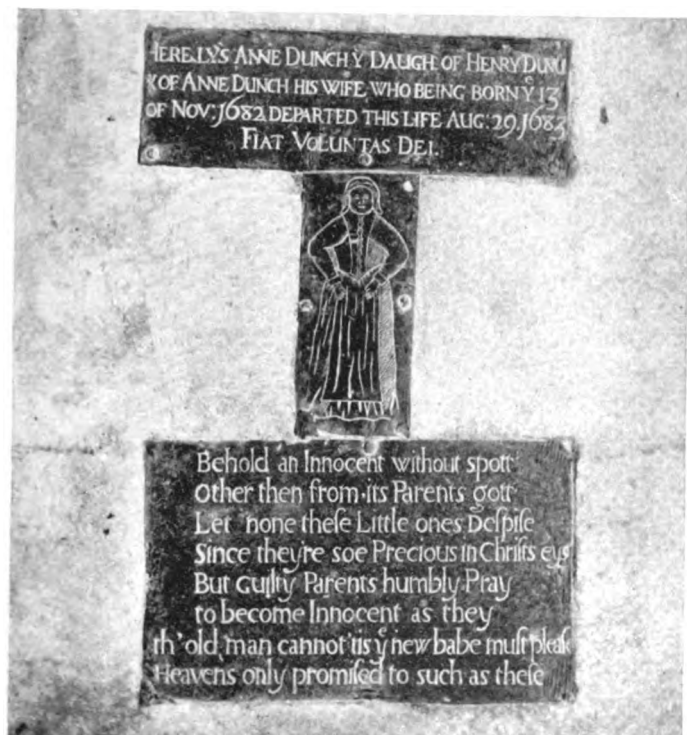 HERE LYS ANNE DUNCH Yͤ DAUGH OF HENRY DUNCH
& OF ANNE DUNCH HIS WIFE, WHO BEING BORN Yͤ 13
OF NOV: 1682 DEPARTED THIS LIFE AUG: 29. 1683
FIAT VOLUNTAS DEI.
Behold an Innocent without spott
Other then from its Parents gott
Let none theſe Little ones Deſpiſe
Since they're soe Precious in Chriſts eys
But Guilty Parents humbly Pray
to become Innocent as they
th'old man cannot 'tis yͤ new babe muſt pleaſe
Heavens only promiſed to such as theſe